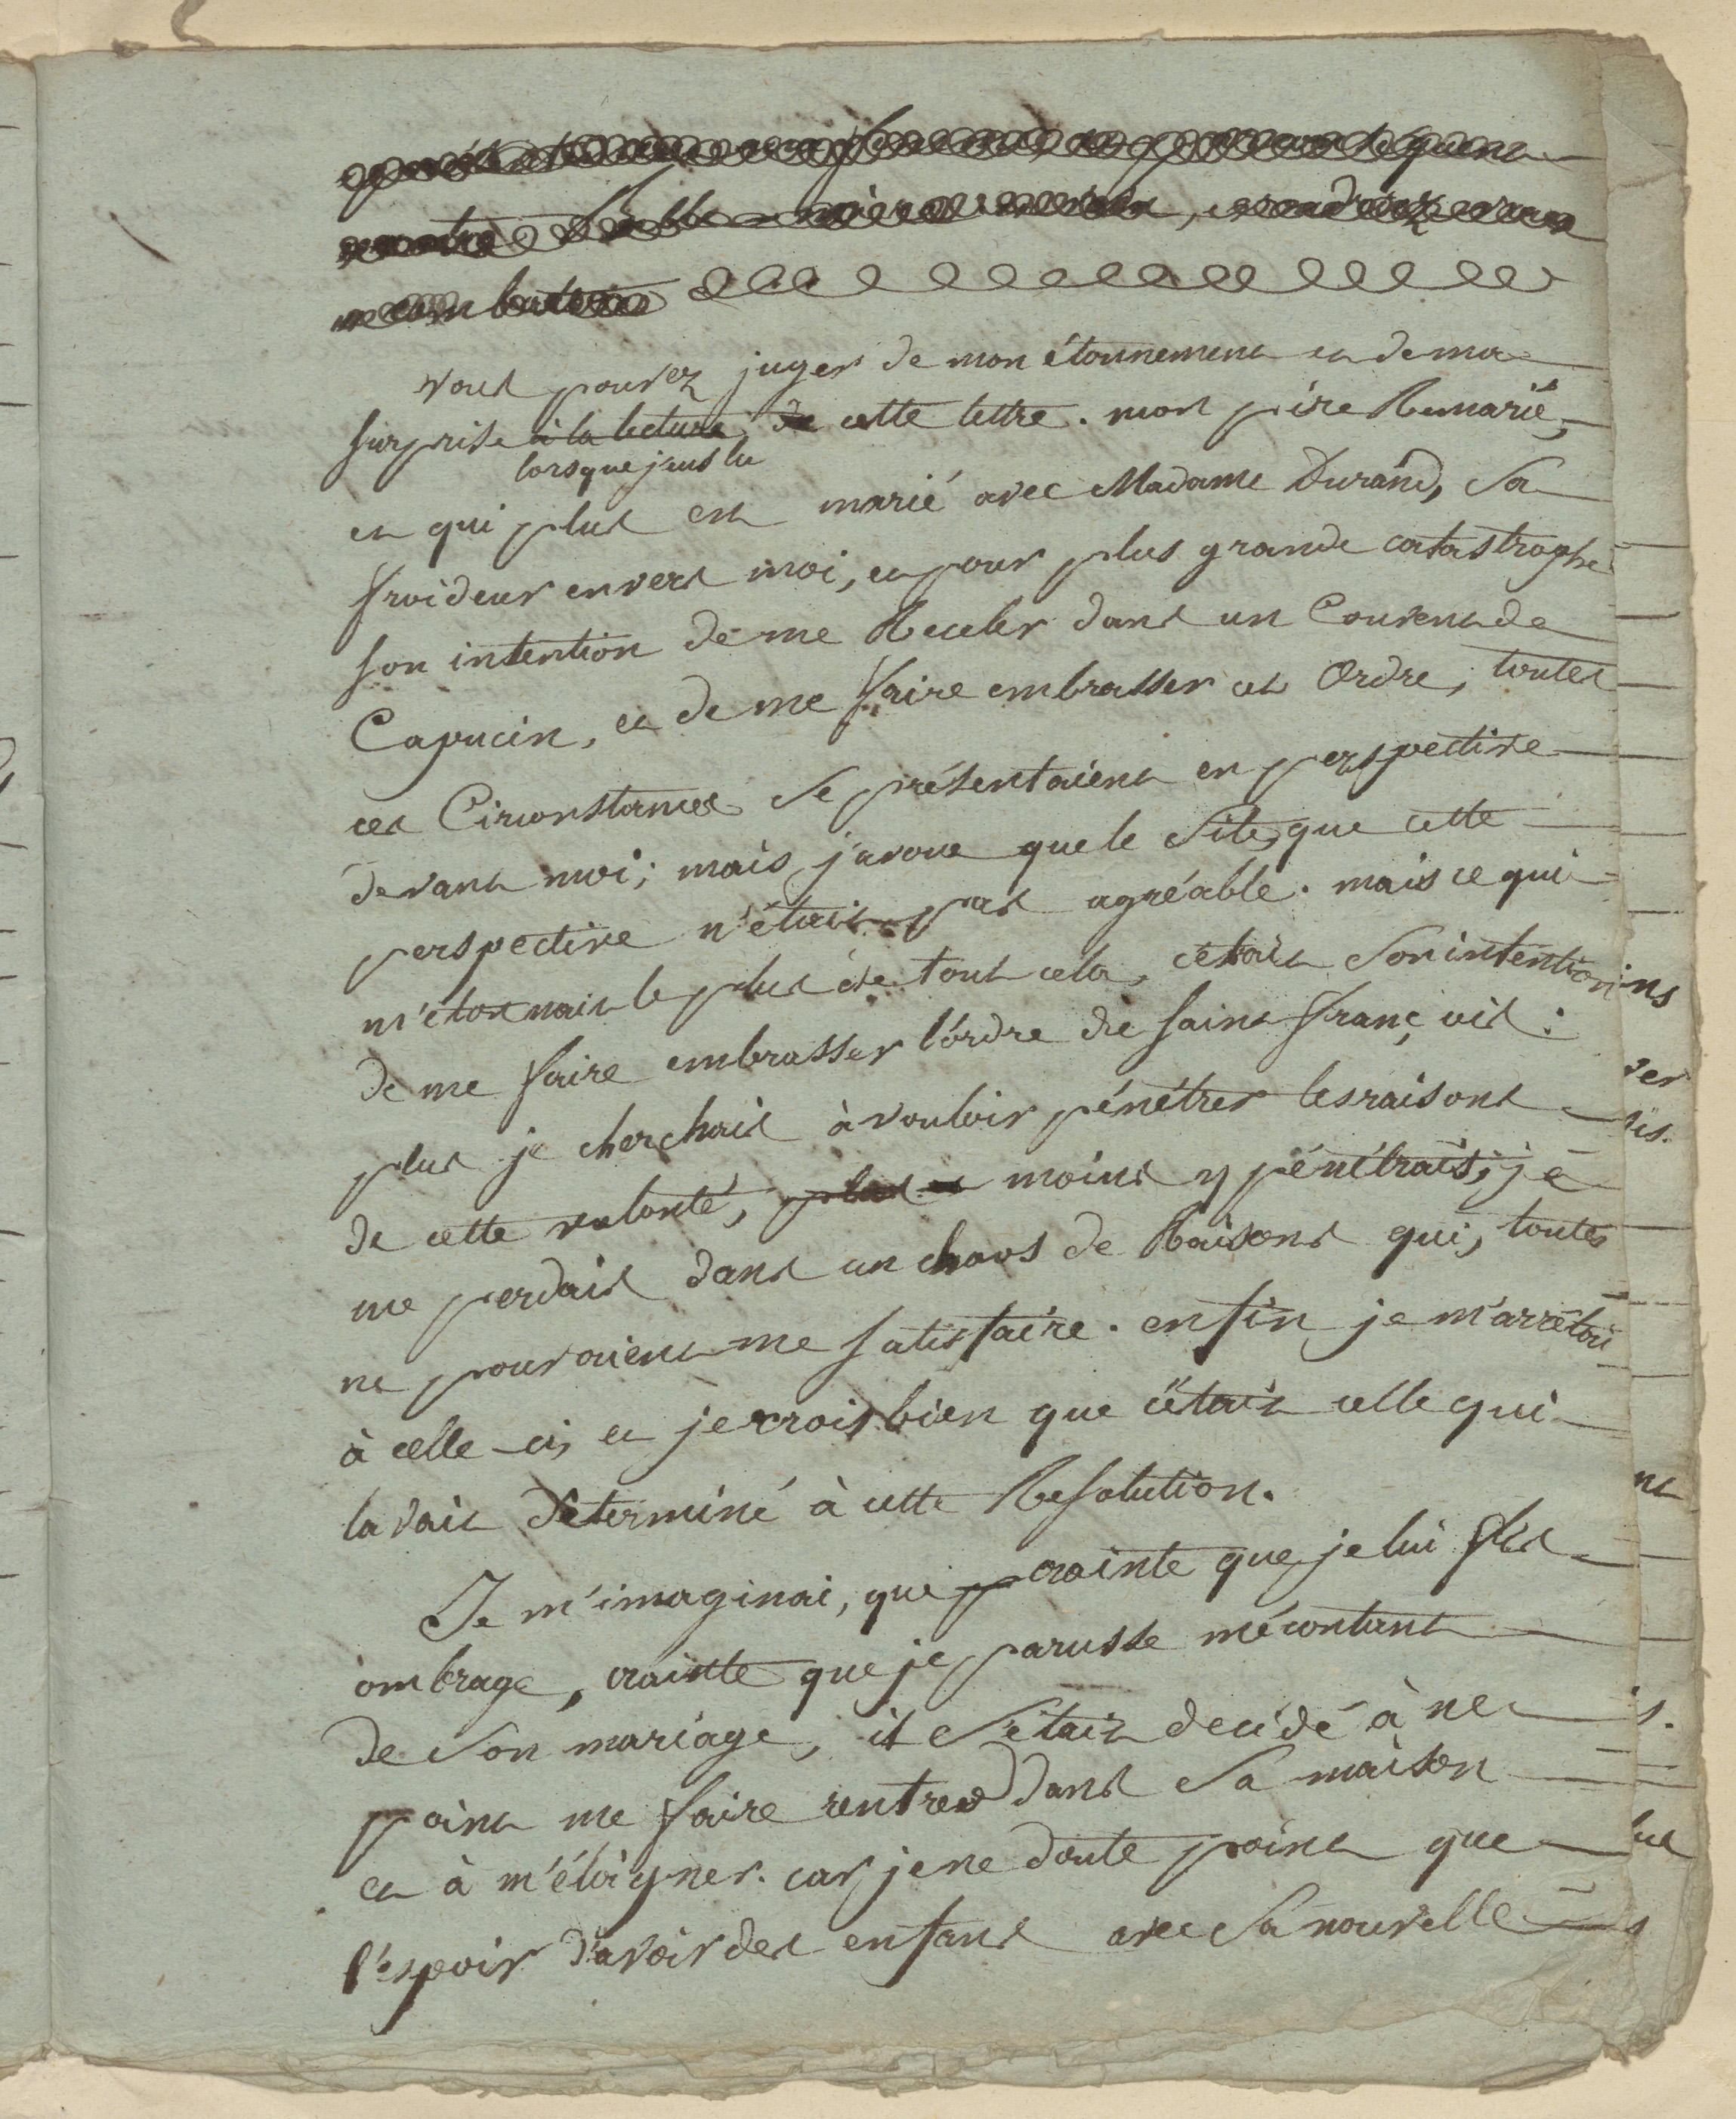 vous pouvez juger de mon étonnement et de ma
surprise à la lecture, de cette lettre. mon père Remarié,
lorsque j'eus lu
et qui plus est marié avec Madame Durand, Sa
froideur envers moi, et pour plus grande catastrophe
son intention de me Receler dans un Couvent de
Capucin, et de me faire embrasser cet Ordre, toutes
ces Circonstances Se présentaient en perspective
devant moi; mais j'avoue que le Site, que cette
perspective n'était pas agréable. mais ce qui
m'étonnait le plus de tout cela, c'était Son intention
de me faire embrasser l'ordre de saint françois:
plus je cherchais à vouloir pénétrer les raisons
de cette volonté, plus moins y pénétrais, je
me perdais dans un chaos de Raisons qui, toutes
ne pouvaient me satisfaire. enfin je m'arrêtai
à celle-ci, et je crois bien que c'était celle qui
lavait déterminé à cette Resolution.
Je m'imaginai, que crainte que je lui fis
ombrage, crainte que je parusse mécontant
de Son mariage, il S'était decidé à ne
point me faire rentrer dans Sa maison
et à m'éloigner. car je ne doute point que
l'espoir d'avoir des enfans avec Sa nouvelle